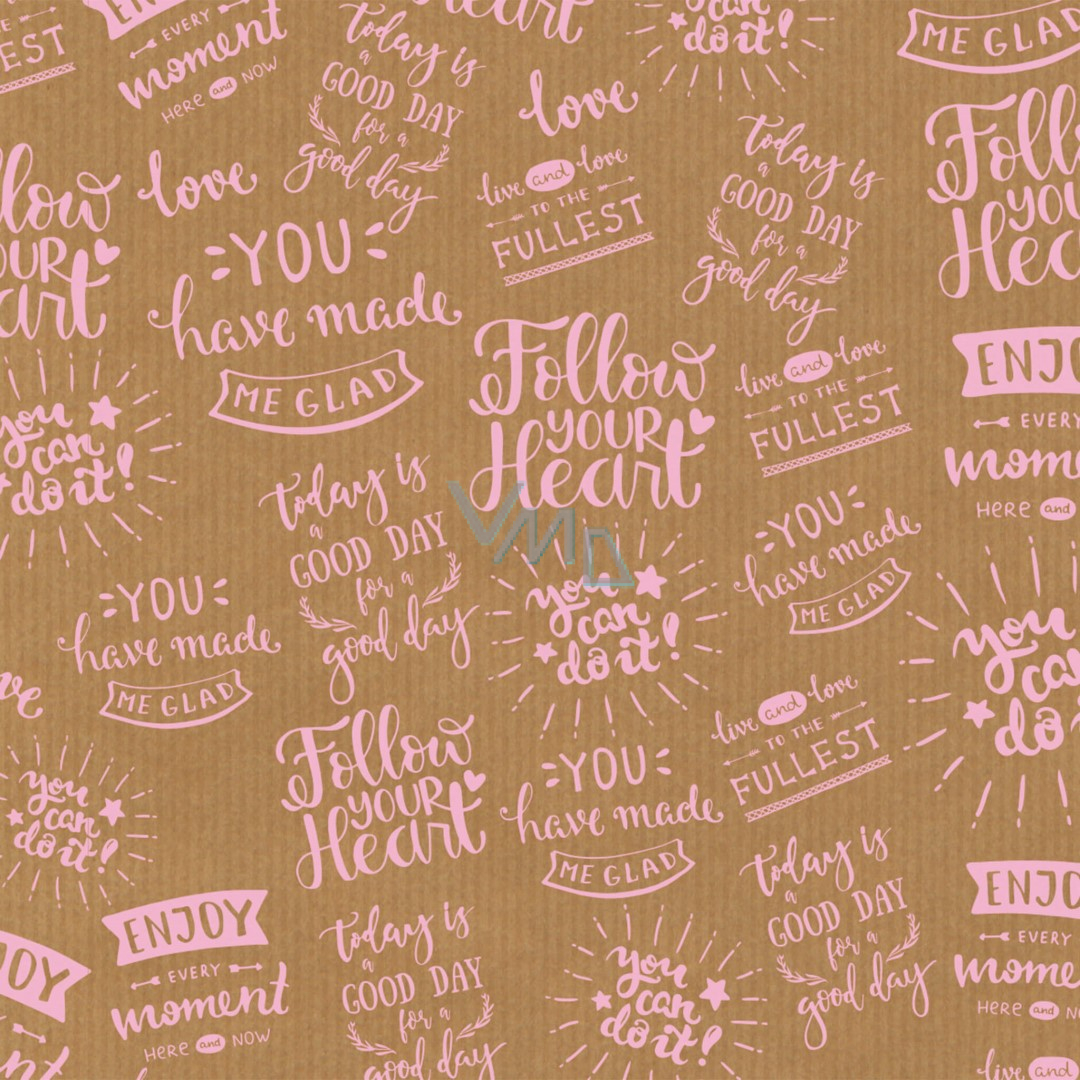 EST
EVERY
moment
HERE and NOW
today is
a
GOOD DAY
for a
good day
Heart
can
do it!
ME GLAD
love
live and love
TO THE
FULLEST
today is
a
GOOD DAY
for a
good day
Follow
YOUR
Heart
love
YOU
have made
ME GLAD
Follow
YOUR
Heart
live and love
TO THE
FULLEST
ENJO
EVERY
mome
HERE and
you
can
do it!
today is
a
GOOD DAY
for a
good day
YOU
have made
ME GLAD
VMD
you
can
do it!
YOU
have made
ME GLAD
you
can
do
live and love
TO THE
FULLEST
Follow
YOUR
Heart
YOU
have made
ME GLAD
you
can
do it!
ENJOY
EVERY
moment
HERE and NOW
today is
a
GOOD DAY
for a
good day
you
can
do it!
today is
a
GOOD DAY
for a
good day
ENJO
EVERY
mome
HERE and N
live and